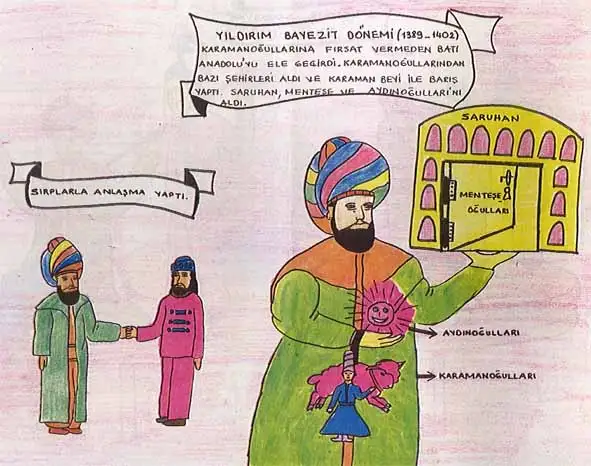 YILDIRIM BAYEZİT DÖNEMİ (1389-1402)
KARAMANOĞULLARINA FIRSAT VERMEDEN BATI
ANADOLU'YU ELE GEÇİRDİ. KARAMANOĞULLARINDAN
BAZI ŞEHİRLERİ ALDI VE KARAMAN BEYİ İLE BARIŞ
YAPTI. SARUHAN, MENTEŞE VE AYDINOĞULLARI'NI
ALDI.
SARUHAN
MENTEŞE
OĞULLARI
SIRPLARLA ANLAŞMA YAPTI.
AYDINOĞULLARI
KARAMANOĞULLARI